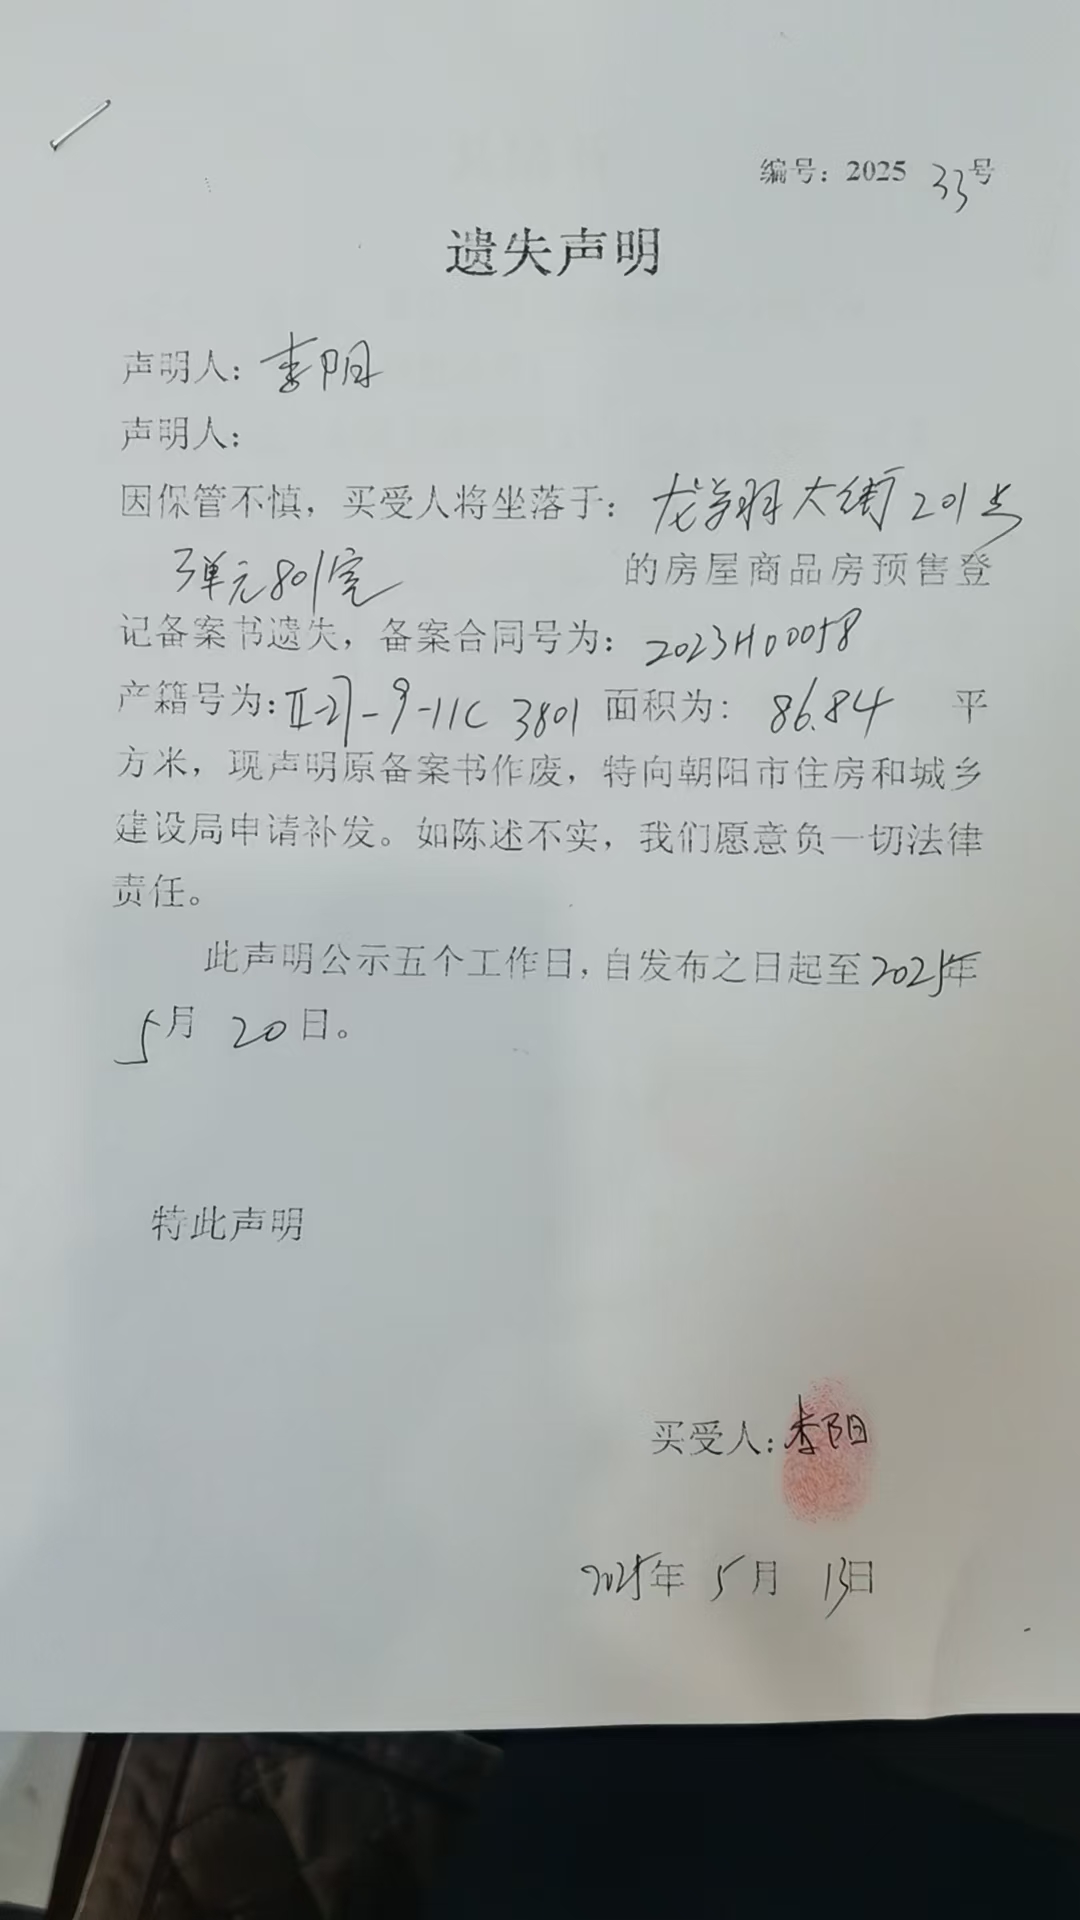 编号：2025 33号
遗失声明
声明人：李阳
声明人：
因保管不慎，买受人将坐落于：龙翔大街201号
3单元801室 的房屋商品房预售登
记备案书遗失，备案合同号为：2023H00058
产籍号为：Ⅱ-27-9-11C 3801 面积为：86.84 平
方米，现声明原备案书作废，特向朝阳市住房和城乡
建设局申请补发。如陈述不实，我们愿意负一切法律
责任。
此声明公示五个工作日，自发布之日起至2025年
5月 20日。
特此声明
买受人：李阳
2025年 5月 13日